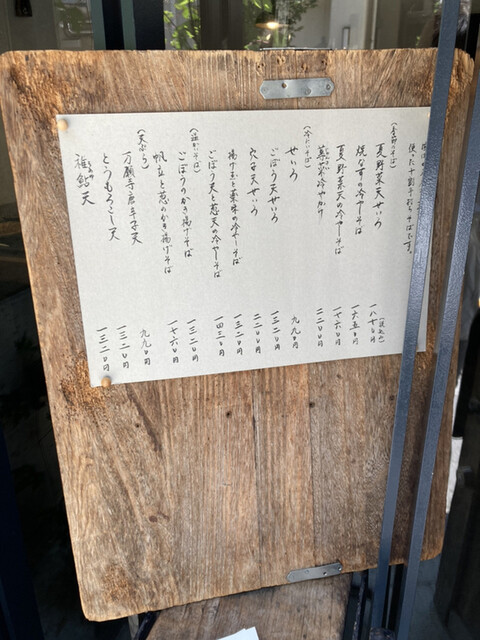 使った十割手打ちそばです。
(季節のそば) (税込み)
夏野菜天せいろ 一八七〇円
焼なすの冷やしそば 一六五〇円
夏野菜天の冷やしそば 一七六〇円
冷やかけ 二二〇〇円
(冷たいそば)
せいろ 九九〇円
ごぼう天せいろ 一三二〇円
穴子天せいろ 二二〇〇円
揚げ玉と薬味の冷やしそば 一三二〇円
ごぼう天と葱天の冷やしそば 一四三〇円
(温かいそば)
ごぼうのかき揚げそば 一三二〇円
帆立と葱のかき揚げそば 一七六〇円
(天ぷら)
万願寺唐辛子天 九九〇円
とうもろこし天 一三二〇円
稚鮎天 一三二〇円